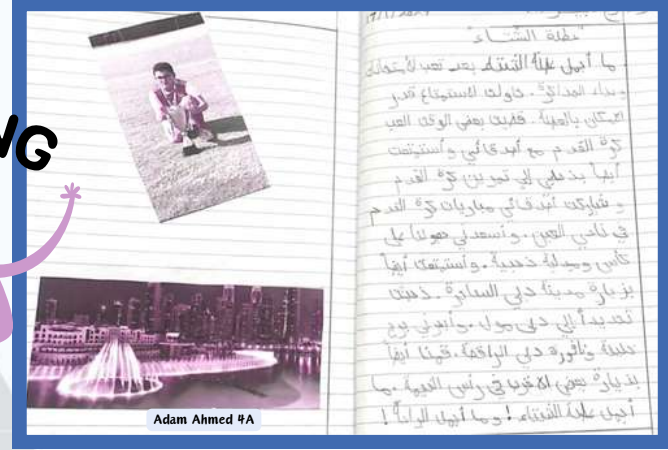 NG
"عطلة الشتاء"
ما أجمل عطلة الشتاء بعد تعب الأمتحانات
المذاكرة. حاولت الاستمتاع قدر
الامكان بالعطلة. قضيت بعض الوقت العب
كرة القدم مع أصدقائي وأستمتعت
أيضاً بذهابي الى تمرين كرة القدم
و شاركت أصدقائي مباريات كرة القدم
في نادي العين. و أسعدني حصولنا على
كأس وميدالية ذهبية. و أستمتعت أيضاً
بزيارة مدينة دبي الساحرة. ذهبت
تحديداً إلى دبي مول. وأبهرني برج
خليفة و نافورة دبي الراقصة. قمنا أيضاً
بزيارة بعض الاقرباء في رأس الخيمة. ما
أجمل عطلة الشتاء! و ما أجمل الإمارات!
Adam Ahmed 4A